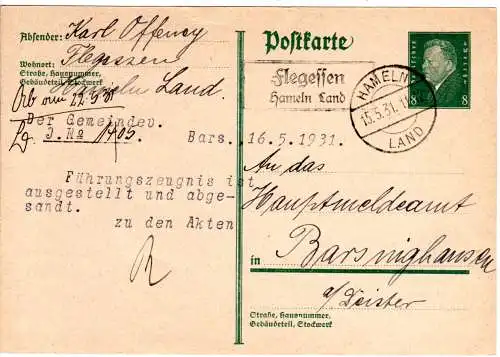 Absender: Karl Offeney
Wohnort: Flegessen
Straße, Hausnummer,
Gebäudeteil, Stockwerk
Hameln Land.
vom 22.5.31
Der Gemeindev.
J.No 1405.
Bars., 16.5.1931.
Führungszeugnis ist
ausgestellt und abge-
sandt.
zu den Akten
R
Postkarte
Flegessen
Hameln Land
HAMELN
15.5.31.
LAND
8 8
An das
Hauptmeldeamt
in Barsinghausen
a/Deister
Straße, Hausnummer,
Gebäudeteil, Stockwerk